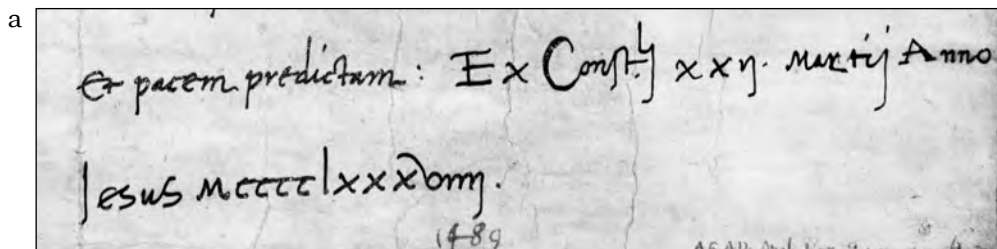 a
Et pacem predictam: Ex Const.lj xxij. Martij Anno
Jesus Mcccclxxxviiij.
1489